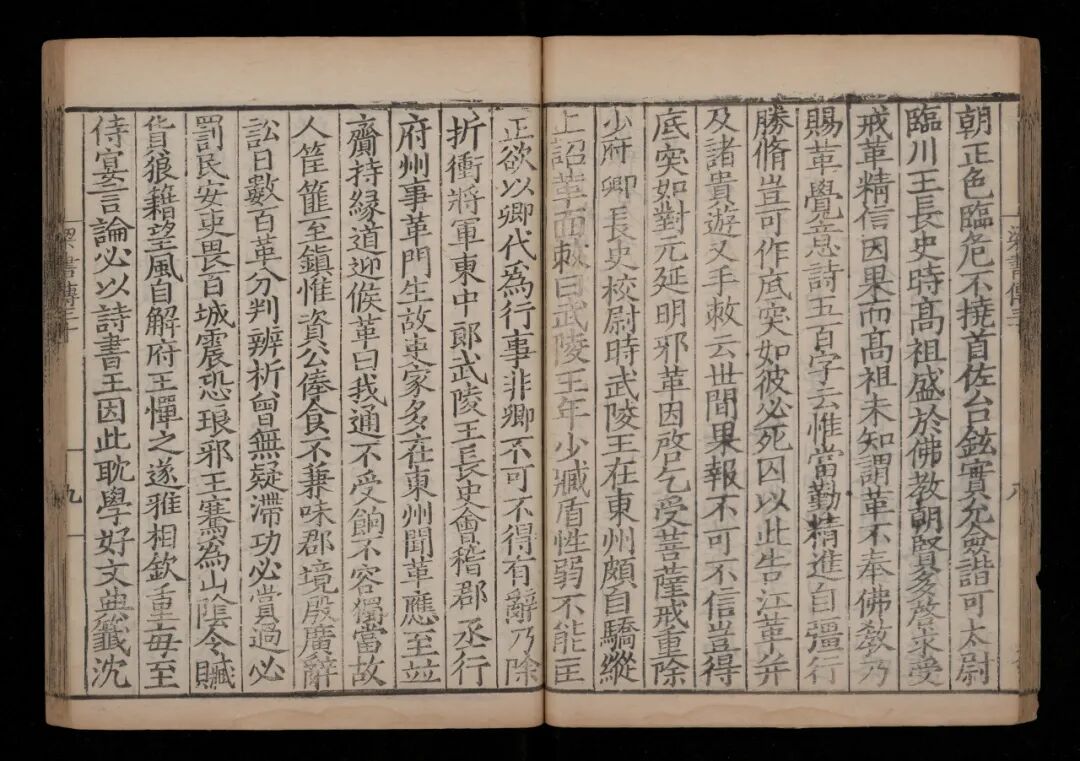 朝正色臨危不撓首佐台鉉實允僉諧可太尉
臨川王長史時髙祖盛於佛教朝賢多啓求受
戒革精信因果而髙祖未知謂革不奉佛教乃
賜革覺意詩五百字云惟當勤精進自彊行
勝脩豈可作底突如彼必死囚以此告江革并
及諸貴遊又手敕云世間果報不可不信豈得
底突如對元延明邪革因啓乞受菩薩戒重除
少府卿長史校尉時武陵王在東州頗自驕縱
上詔革面敕曰武陵王年少臧盾性弱不能匡
正欲以卿代為行事非卿不可不得有辭乃除
折衝將軍東中郎武陵王長史會稽郡丞行
府州事革門生故吏家多在東州聞革應至並
齎持緣道迎候革曰我通不受餉不容獨當故
人筐篚至鎮惟資公俸食不兼味郡境殷廣辭
訟日數百革分判辨析曾無疑滯功必賞過必
罰民安吏畏百城震恐琅邪王騫為山陰令贓
貨狼藉望風自解府王憚之遂雅相欽重毎至
侍宴言論必以詩書王因此耽學好文典籖沈
梁書傳三十
九